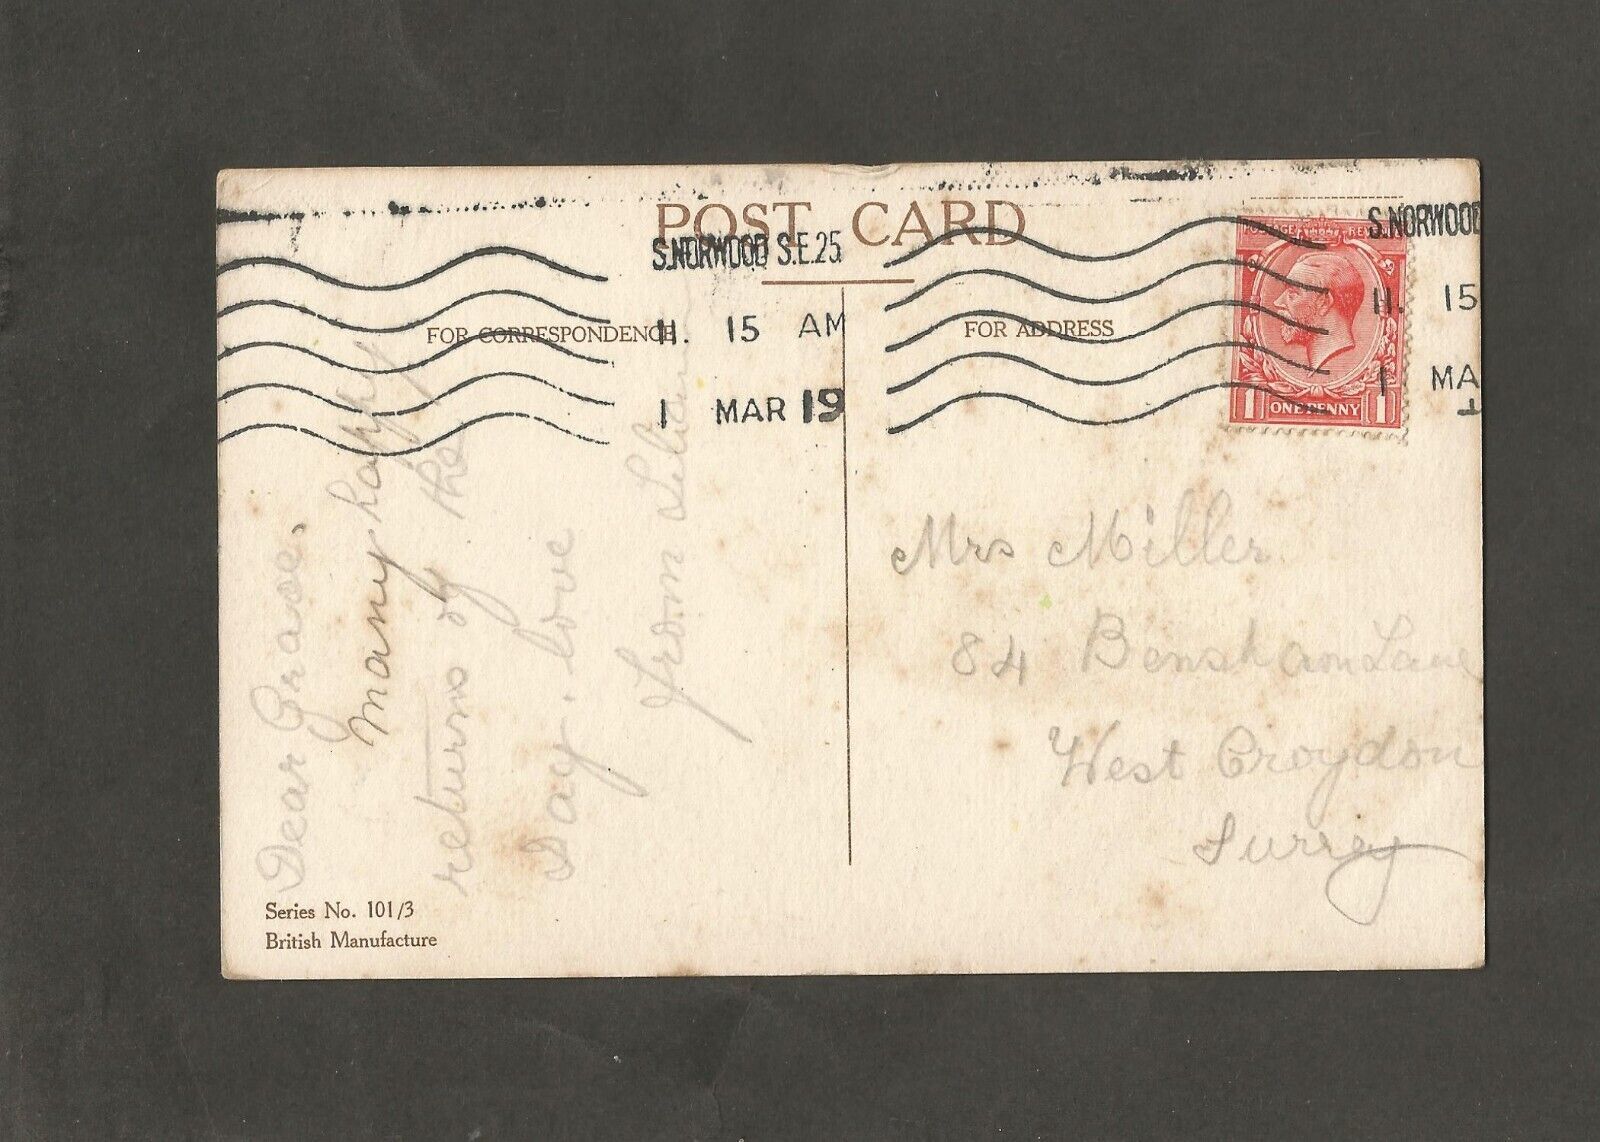 POST CARD
S.NORWOOD S.E.25
11. 15 AM
1 MAR 19
S.NORWOOD
11. 15
1 MA
POSTAGE REVENUE
1 ONE PENNY 1
FOR CORRESPONDENCE
FOR ADDRESS
Dear Grace.
Many happy
returns of the
Day. love
from Lilian
Mrs Miller
84 Bensham Lane
West Croydon
Surrey
Series No. 101/3
British Manufacture